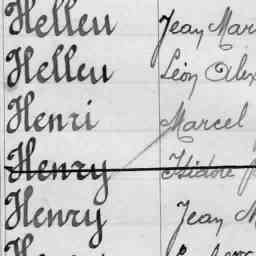 Helleu Jean Mar
Helleu Léon Alex
Henri Marcel
Henry Isidore
Henry Jean M